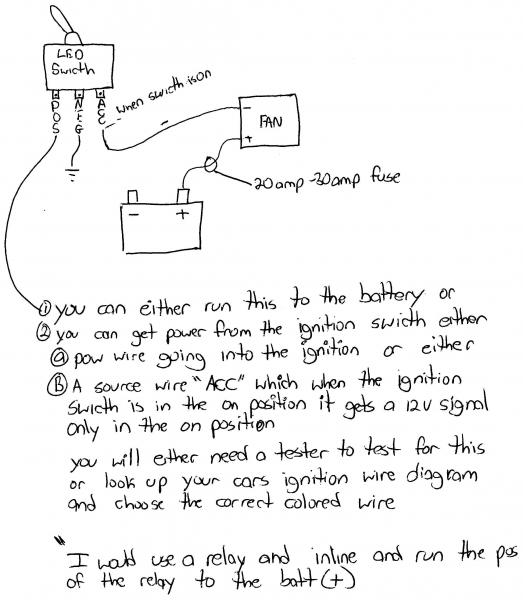 LED
Swicth
POS
NEG
ACC
when swicth is on
-
FAN
+
20 amp - 30 amp fuse
- +
① you can either run this to the battery or
② you can get power from the ignition swicth either
ⓐ pow wire going into the ignition or either
Ⓑ A source wire "ACC" which when the ignition
swicth is in the on position it gets a 12v signal
only in the on position
you will either need a tester to test for this
or look up your cars ignition wire diagram
and choose the correct colored wire
" I would use a relay and inline and run the pos
of the relay to the batt (+)